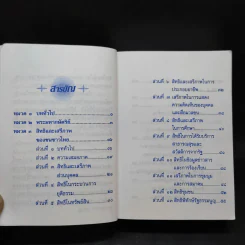 สารบัญ
หมวด ๑ บททั่วไป
หมวด ๒ พระมหากษัตริย์
หมวด ๓ สิทธิและเสรีภาพ
ของชนชาวไทย
ส่วนที่ ๑ บททั่วไป
ส่วนที่ ๒ ความเสมอภาค
ส่วนที่ ๓ สิทธิและเสรีภาพ
ส่วนบุคคล
ส่วนที่ ๔ สิทธิในกระบวนการ
ยุติธรรม
ส่วนที่ ๕ สิทธิในทรัพย์สิน
ส่วนที่ ๖ สิทธิและเสรีภาพในการ
ประกอบอาชีพ
ส่วนที่ ๗ เสรีภาพในการแสดง
ความคิดเห็นของบุคคล
และสื่อมวลชน
ส่วนที่ ๘ สิทธิและเสรีภาพ
ในการศึกษา
ส่วนที่ ๙ สิทธิในการได้รับบริการ
สาธารณสุขและ
สวัสดิการจากรัฐ
ส่วนที่ ๑๐ สิทธิในข้อมูลข่าวสาร
และการร้องเรียน
ส่วนที่ ๑๑ เสรีภาพในการชุมนุม
และการสมาคม
ส่วนที่ ๑๒ สิทธิชุมชน
ส่วนที่ ๑๓ สิทธิพิทักษ์รัฐธรรมนูญ